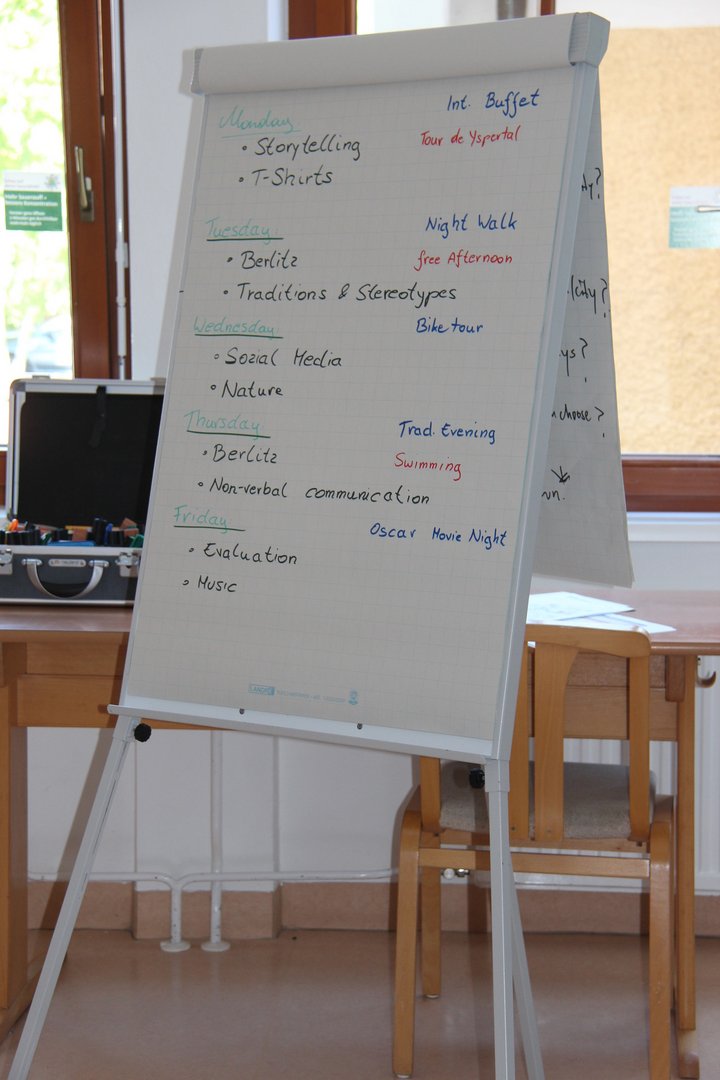 Monday
Int. Buffet
• Storytelling
Tour de Yspertal
• T-Shirts
Tuesday:
Night Walk
• Berlitz
free Afternoon
• Traditions & Stereotypes
Wednesday:
Bike tour
• Sozial Media
• Nature
Thursday
Trad. Evening
• Berlitz
Swimming
• Non-verbal communication
Friday
Oscar Movie Night
• Evaluation
• Music
choose?